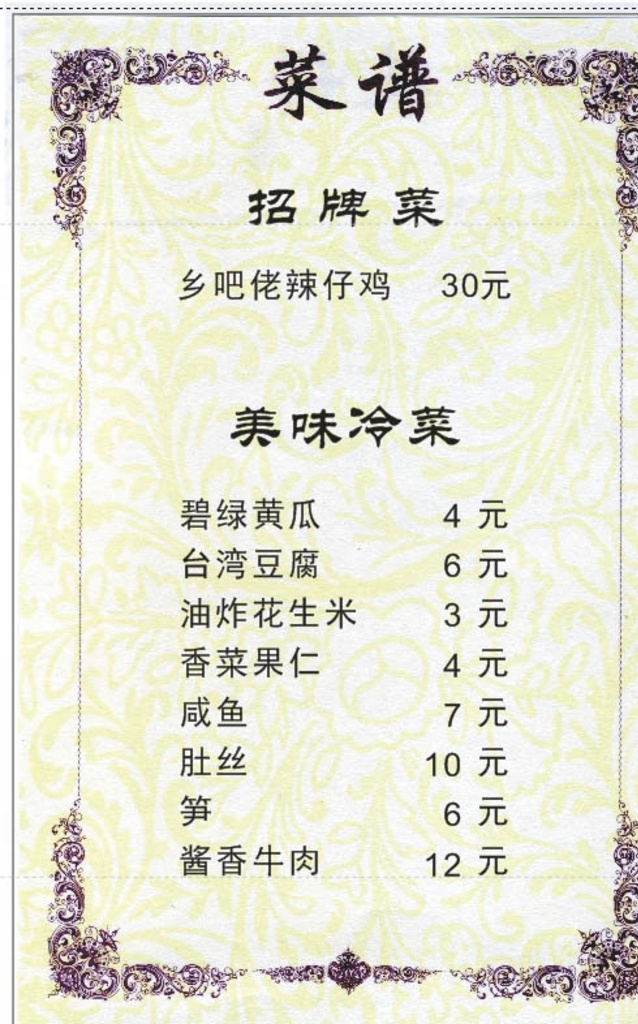 菜谱
招牌菜
乡吧佬辣仔鸡 30元
美味冷菜
碧绿黄瓜 4 元
台湾豆腐 6 元
油炸花生米 3 元
香菜果仁 4 元
咸鱼 7 元
肚丝 10 元
笋 6 元
酱香牛肉 12 元